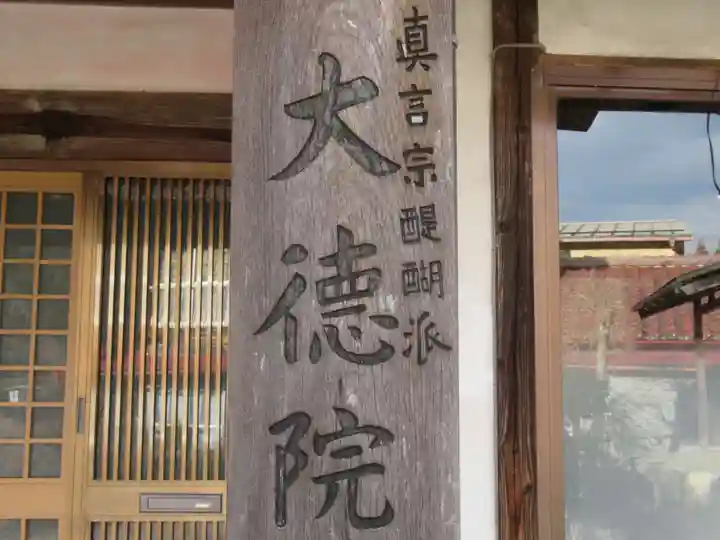 眞言宗醍醐派
大德院